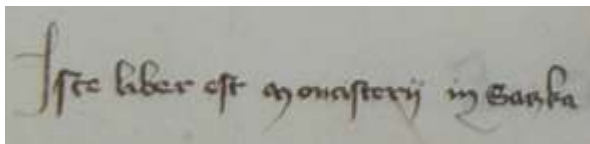 Iste liber est monasterij in Garzka